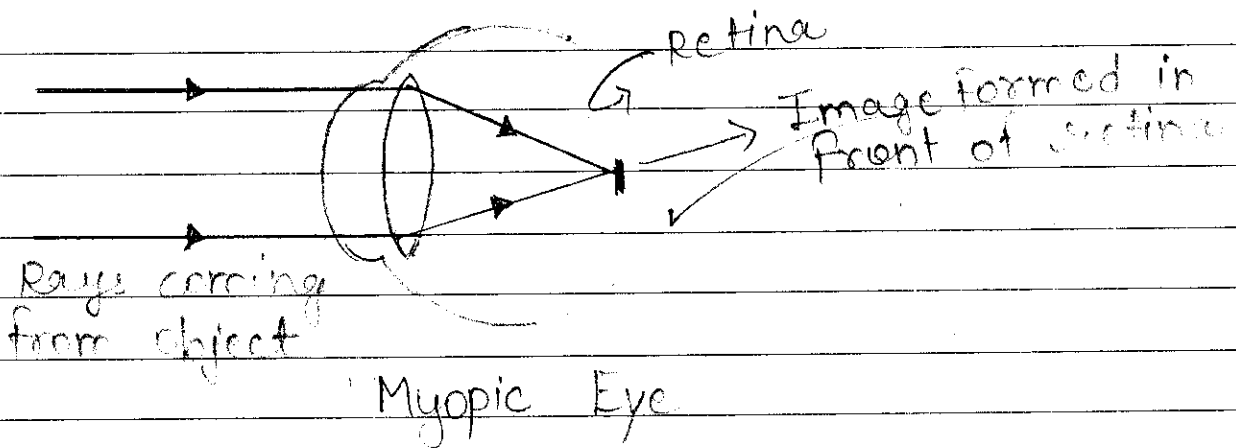 Retina
Image formed in
front of retina
Rays coming
from object
Myopic Eye